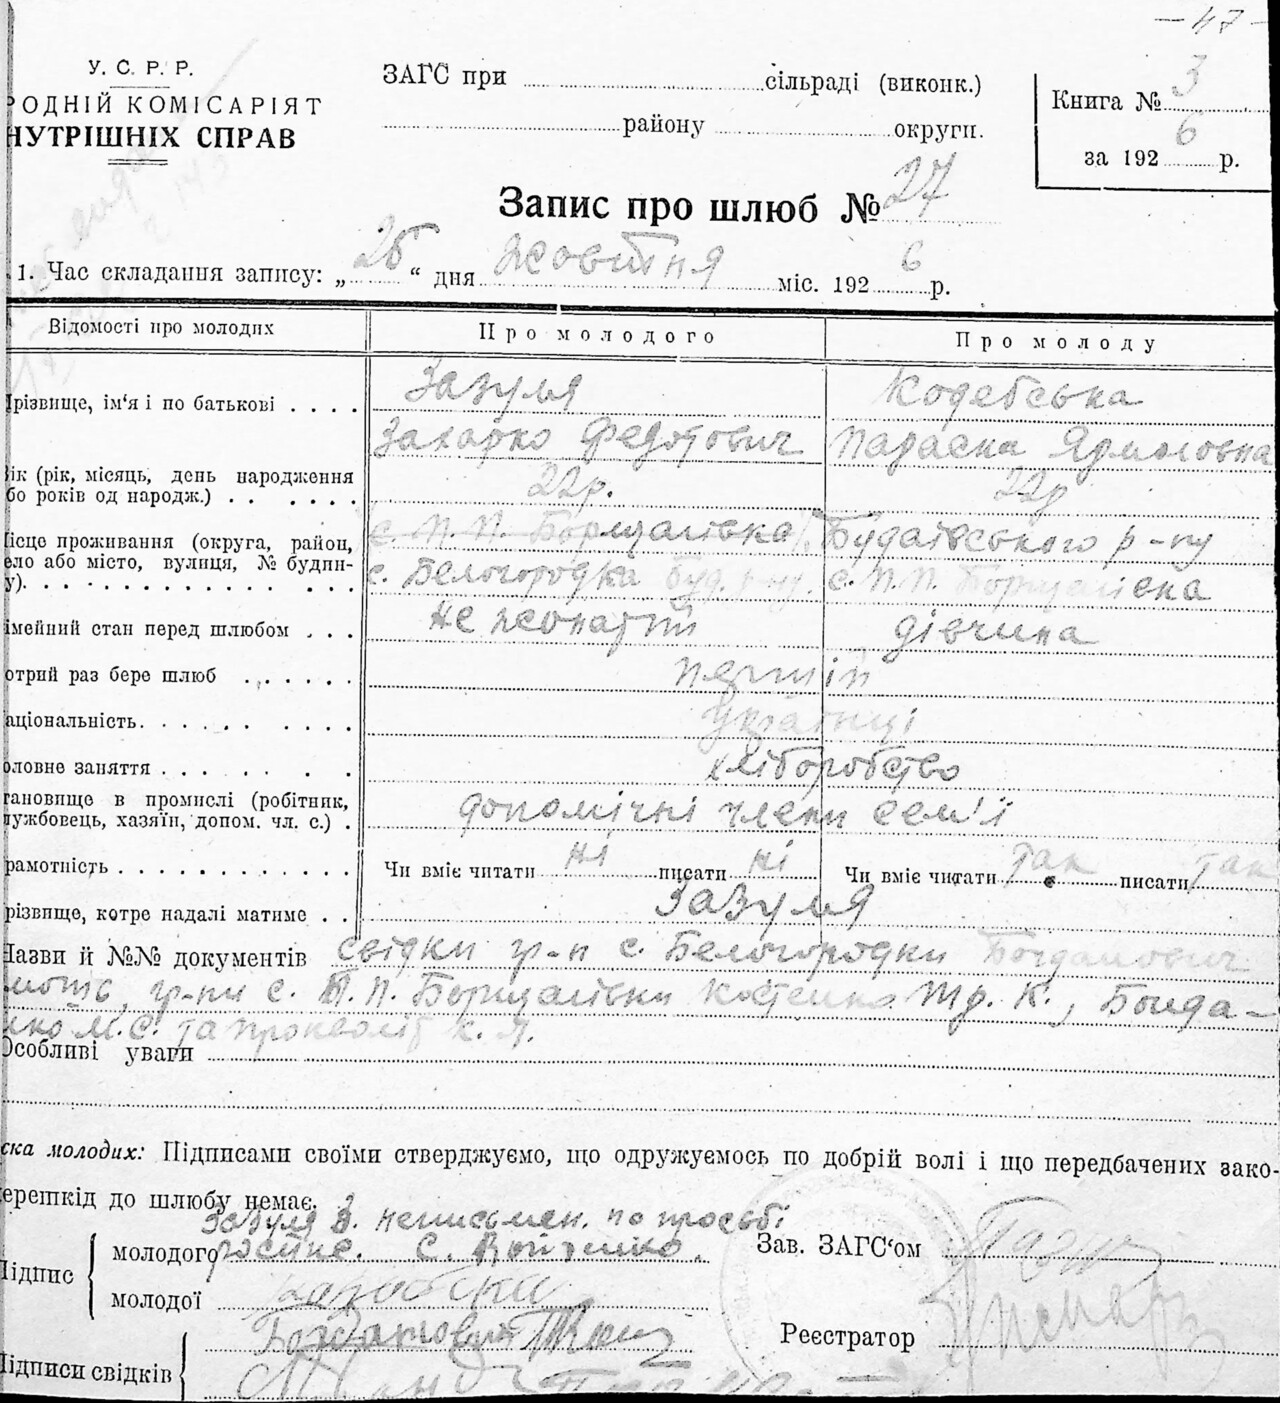 — 47 —
У. С. Р. Р.
РОДНІЙ КОМІСАРІЯТ
НУТРІШНІХ СПРАВ
ЗАГС при сільраді (виконк.)
району округи.
Книга № 3
за 192 6 р.
Запис про шлюб № 27
1. Час складання запису: „ 26 “ дня жовтня міс. 192 6 р.
Відомості про молодих
Про молодого
Про молоду
різвище, ім'я і по батькові . . . .
Зазуля
Кодебська
Захарко Федотович
Параска Ярмоловна
ік (рік, місяць, день народження
бо років од народж.) . . . . . .
22р.
22р
ісце проживання (округа, район,
ело або місто, вулиця, № будин-
у). . . . . . . . . . . . . . .
с. П. П. Борщагівка
с. Белогородка Буд. р-ну.
Будаївського р-ну
с. П. П. Борщагівка
імейний стан перед шлюбом . . .
не жонатий
дівчина
отрий раз бере шлюб . . . . . .
перший
аціональність. . . . . . . . . .
українці
оловне заняття . . . . . . . .
хліборобство
тановище в промислі (робітник,
лужбовець, хазяїн, допом. чл. с.) .
допомічні члени сем'ї
рамотність . . . . . . . . . . . .
Чи вміє читати ні писати ні
Чи вміє читати так писати так
різвище, котре надалі матиме . .
Зазуля
Назви й №№ документів свідки гр-н с. Белогородки Богданович
гр-ни с. П. П. Борщагівки Костенко Тр. К., Бонда-
нко М. С. та К. Я.
Особливі уваги
ска молодих: Підписами своїми стверджуємо, що одружуємось по добрій волі і що передбачених зако-
ерешкід до шлюбу немає.
Зазуля З. неписьмен. по просьбі
молодого
Підпис
молодої
Зав. ЗАГС'ом
Реєстратор
Підписи свідків
Богданович